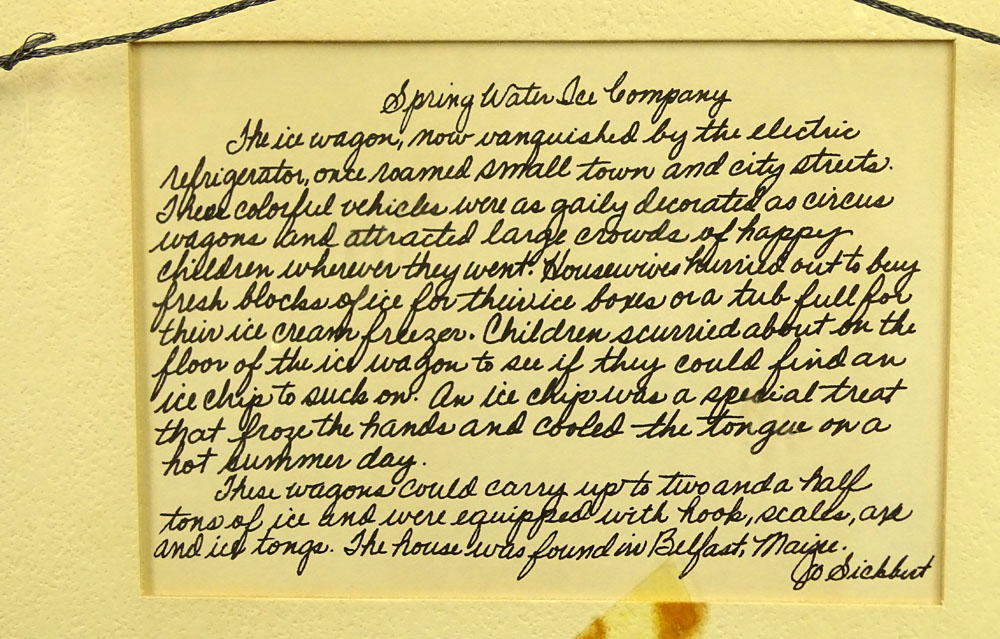 Spring Water Ice Company
The ice wagon, now vanquished by the electric
refrigerator, once roamed small town and city streets.
These colorful vehicles were as gaily decorated as circus
wagons and attracted large crowds of happy
children wherever they went. Housewives hurried out to buy
fresh blocks of ice for their ice boxes or a tub full for
their ice cream freezer. Children scurried about on the
floor of the ice wagon to see if they could find an
ice chip to suck on. An ice chip was a special treat
that froze the hands and cooled the tongue on a
hot summer day.
These wagons could carry up to two and a half
tons of ice and were equipped with hook, scales, axe
and ice tongs. The house was found in Belfast, Maine.
Jo Sickbert